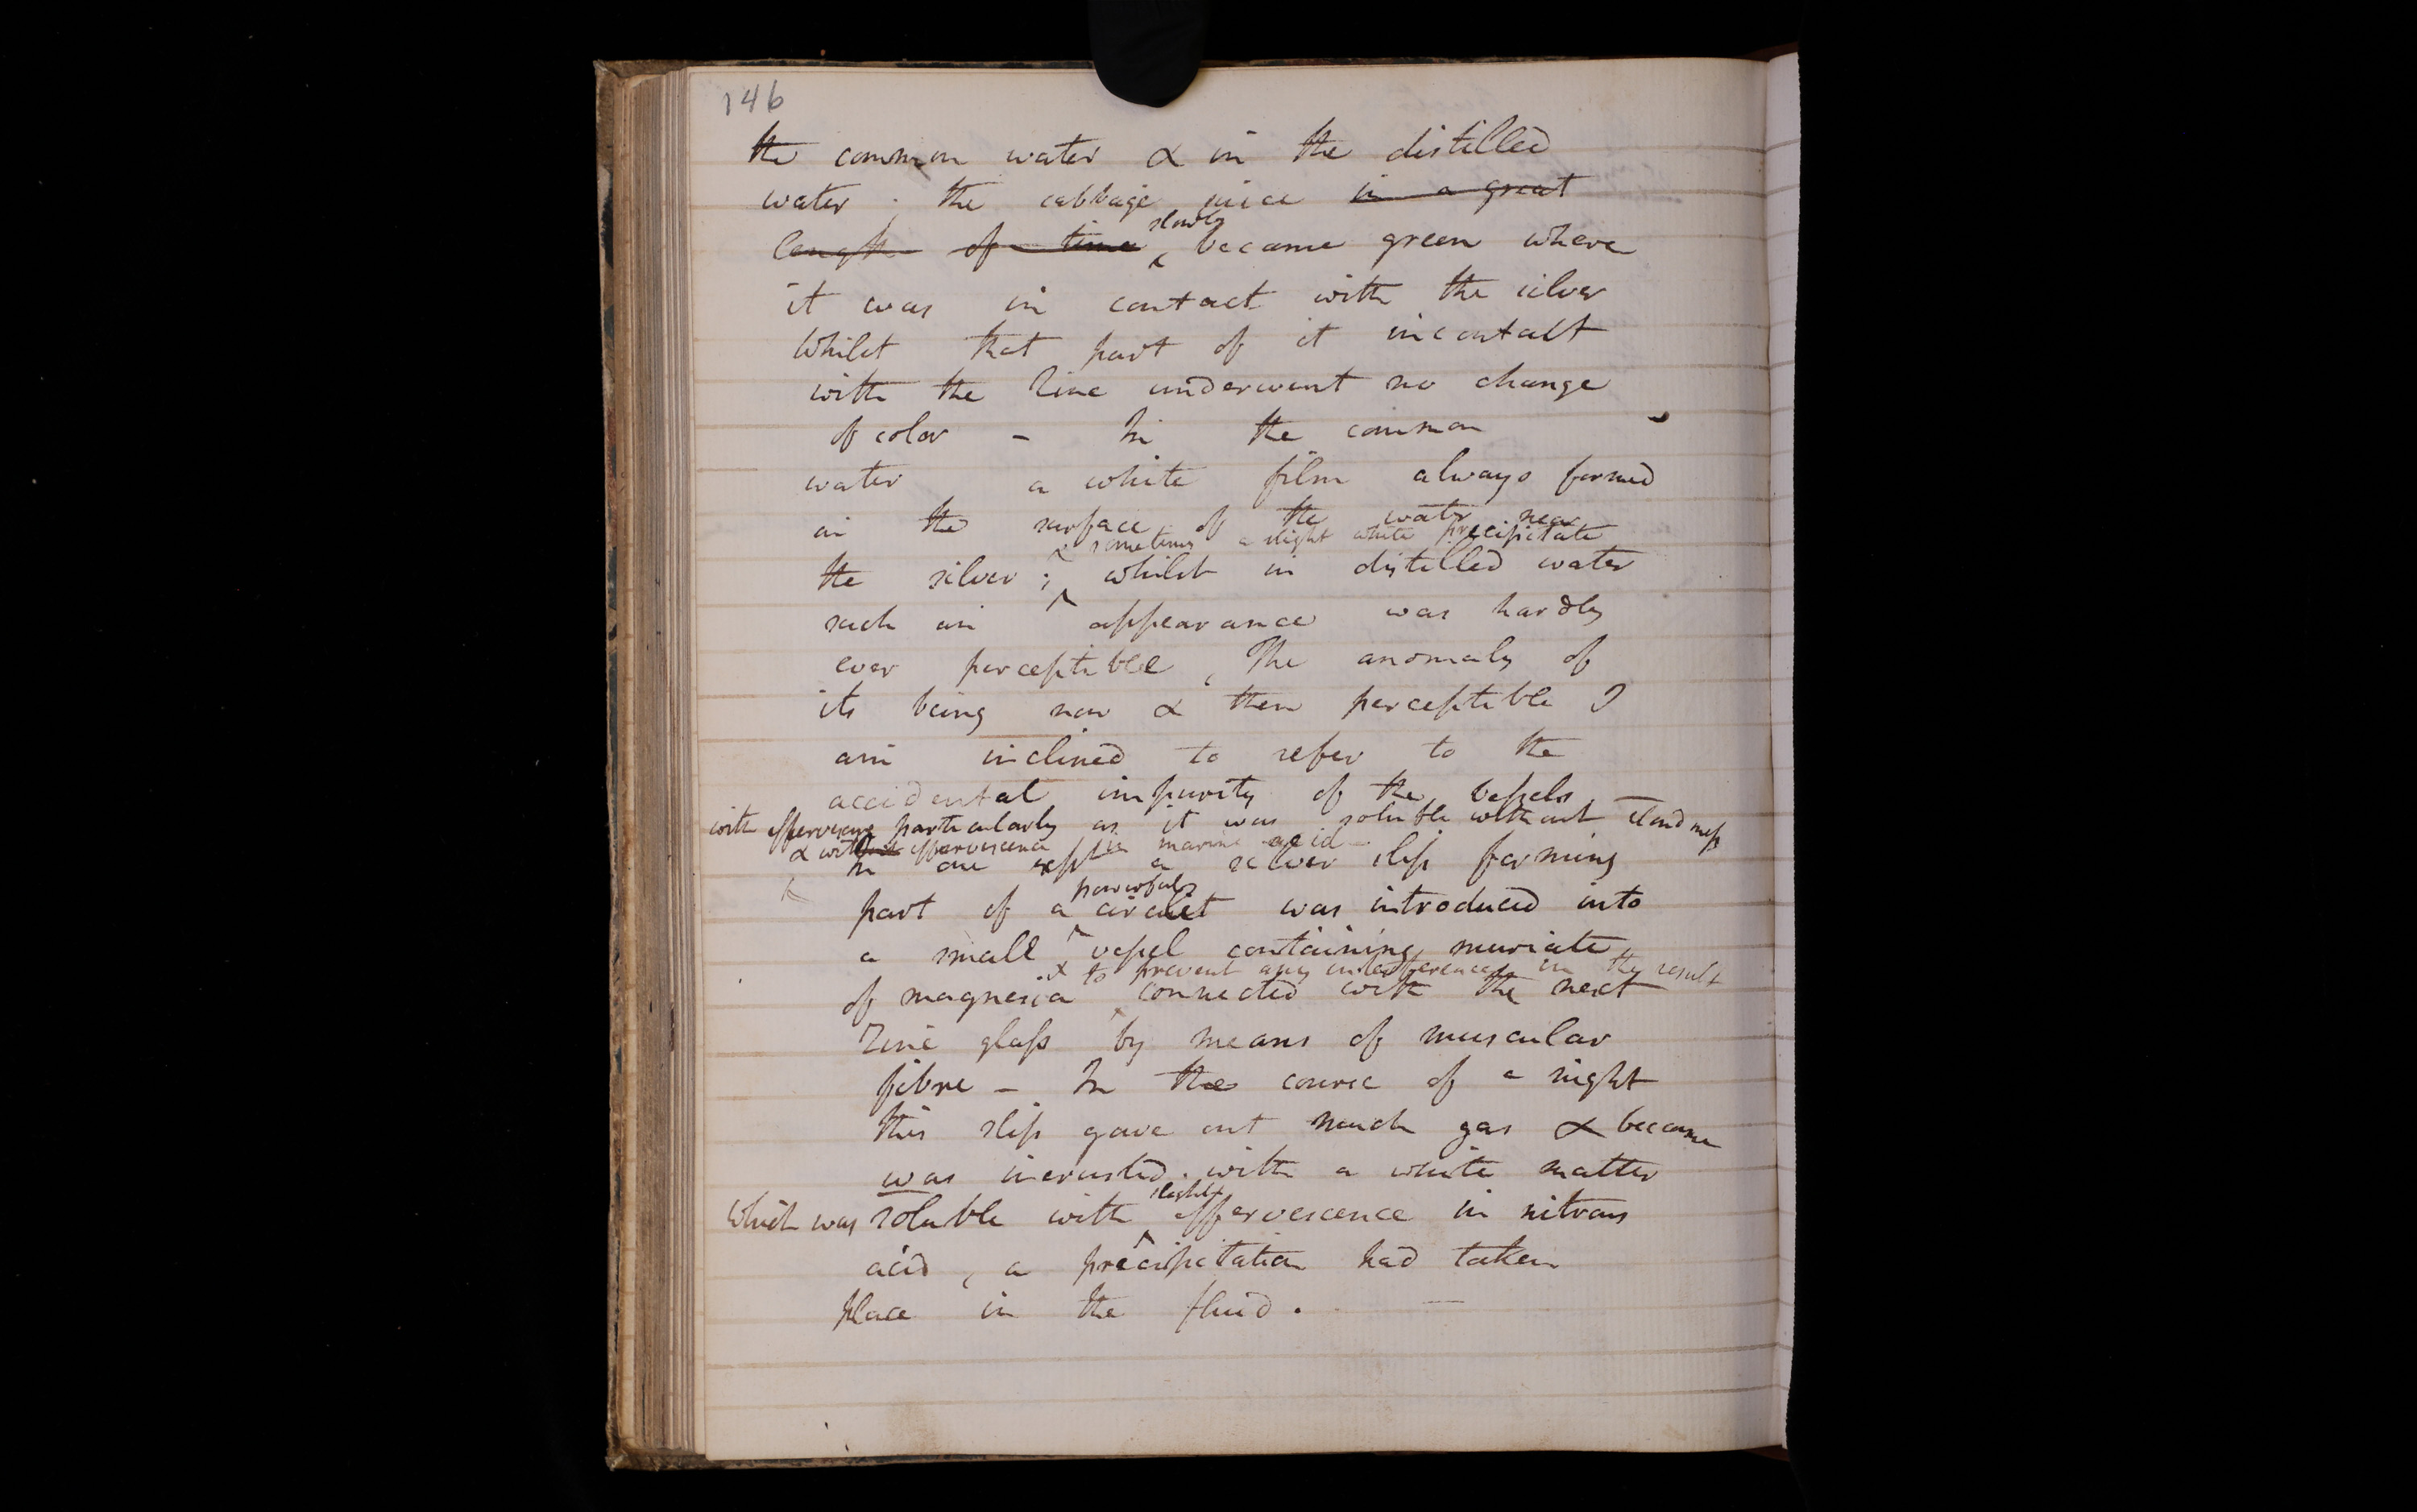 146
the common water & in the distilled
water . the cabbage juice in a great
length of time slowly became green where
it was in contact with the silver
Whilst that part of it in contact
with the Zinc underwent no change
of color - In the common
water a white film always formed
on the surface of the water near
& sometimes a slight white precipitate
the silver ; whilst in distilled water
such an appearance was hardly
ever perceptible , The anomaly of
its being now & then perceptible I
am inclined to refer to the
accidental impurity of the vessels
with effervescence particularly as it was soluble without cloudiness
& without effervescence in marine acid -
In one expt a silver slip forming
powerful
part of a circuit was introduced into
a small vessel containing muriate
& to prevent any interference in the result
of magnesia connected with the next
Zinc glass by means of muscular
fibre - In the course of a night
this slip gave out much gas & became
was incrusted with a white matter
slight
which was soluble with effervescence in nitrous
acid , a precipitation had taken
place in the fluid . —